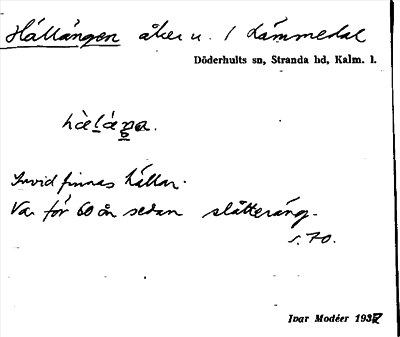 Hällängen åker u. 1 Lämmedal
Döderhults sn, Stranda hd, Kalm. l.
hä̀läŋa.
Invid finnas hällar.
Var för 60 år sedan slåtteräng.
s. 70.
Ivar Modéer 1937